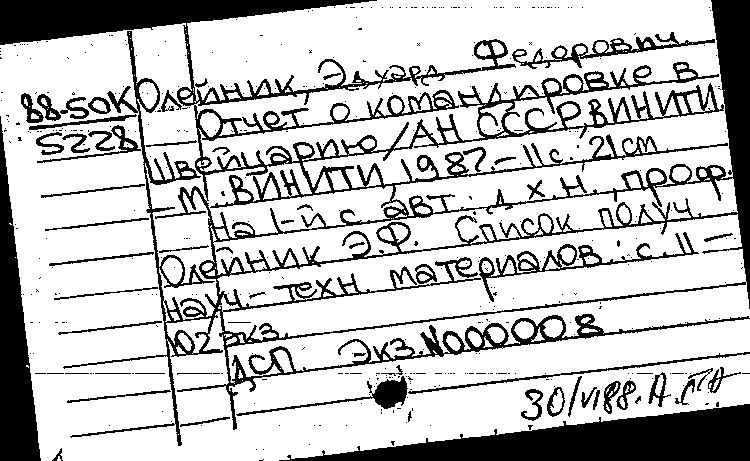 88-50К Олейник, Эдуард Федорович.
5228 Отчет о командировке в
Швейцарию /АН СССР, ВИНИТИ.
– М.: ВИНИТИ, 1987. – 11 с.; 21 см
На 1-й с. авт. д. х. н., проф.
Олейник Э.Ф. Список получ.
науч.-техн. материалов: с. 11 –
102 экз.
ДСП. Экз. N000008
30/VI88.